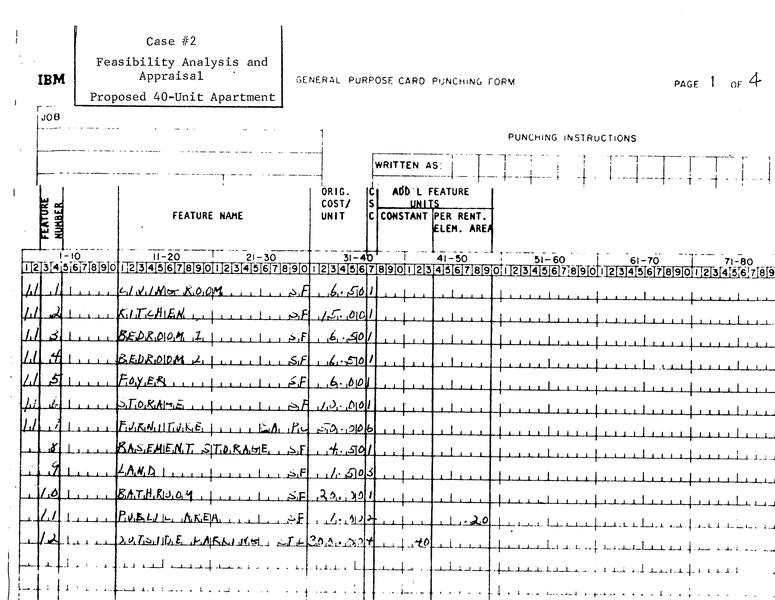 Case #2
Feasibility Analysis and
Appraisal
Proposed 40-Unit Apartment
IBM
GENERAL PURPOSE CARD PUNCHING FORM
PAGE 1 OF 4
JOB
PUNCHING INSTRUCTIONS
WRITTEN AS:
FEATURE NUMBER
FEATURE NAME
ORIG. COST/ UNIT
C S C
ADD'L FEATURE UNITS
CONSTANT
PER RENT. ELEM. AREA
1-10 11-20 21-30 31-40 41-50 51-60 61-70 71-80
1 2 3 4 5 6 7 8 9 0 1 2 3 4 5 6 7 8 9 0 1 2 3 4 5 6 7 8 9 0 1 2 3 4 5 6 7 8 9 0 1 2 3 4 5 6 7 8 9 0 1 2 3 4 5 6 7 8 9 0 1 2 3 4 5 6 7 8 9 0 1 2 3 4 5 6 7 8 9
11 1 LIVING ROOM SF 6.50 1
11 2 KITCHEN SF 15.00 1
11 3 BEDROOM 1 SF 6.50 1
11 4 BEDROOM 2 SF 6.50 1
11 5 FOYER SF 6.00 1
11 STORAGE SF 1
11 7 FURNITURE 6
8 BASEMENT STORAGE SF 4.50 1
9 LAND SF 1.50 3
10 BATHROOM SF 1
11 PUBLIC AREA SF 1. 20
12 OUTSIDE PARKING 40